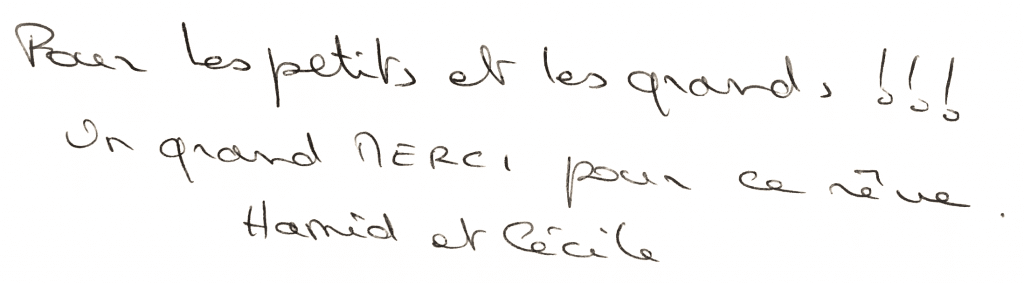 Pour les petits et les grands !!!
Un grand MERCI pour ce rêve.
Hamid et Cécile